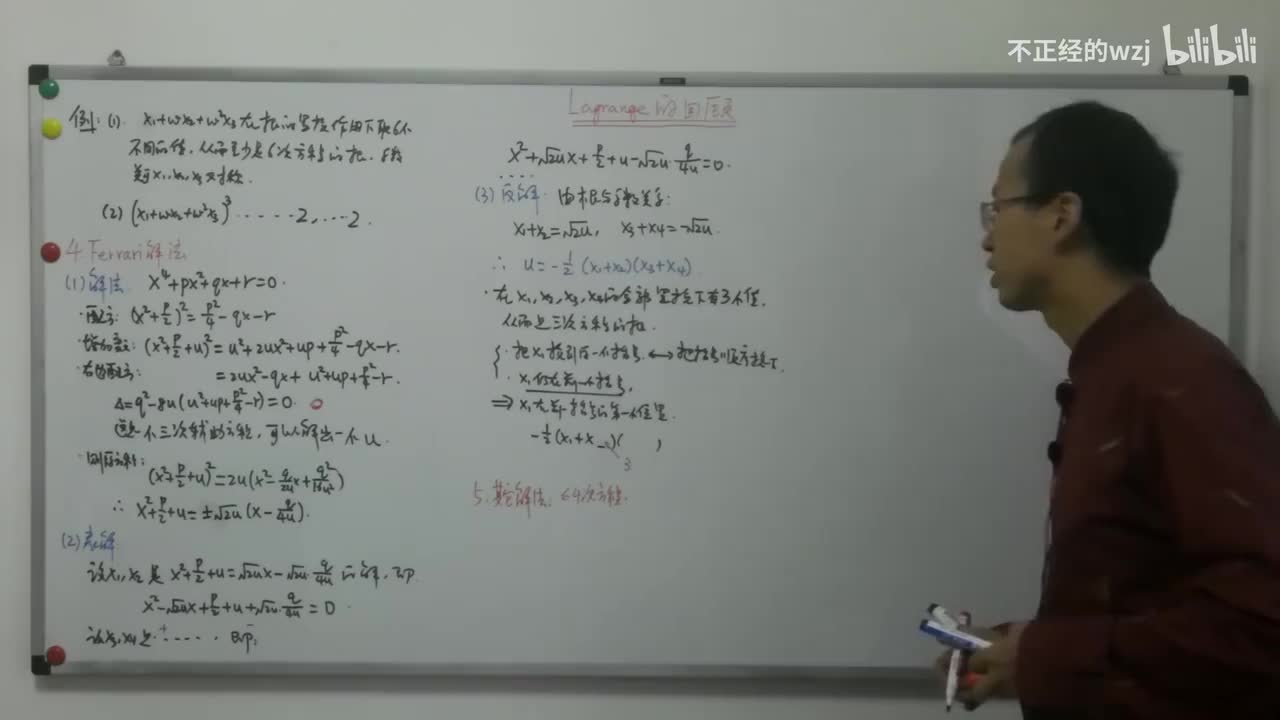 不正经的wzj bilibili
Lagrange的回顾
例: (1) x₁+ωx₂+ω²x₃在根的置换作用下取6个
不同的值, 从而至少是6次方程的根, 系数
关于x₁,x₂,x₃对称.
(2) (x₁+ωx₂+ω²x₃)³ ······2, ···2.
4. Ferrari解法
(1) 解法 x⁴+px²+qx+r=0.
·配方: (x²+p/2)²=p²/4-qx-r
·增加参数: (x²+p/2+u)²=u²+2ux²+up+p²/4-qx-r.
·右边配方: =2ux²-qx+u²+up+p²/4-r.
Δ=q²-8u(u²+up+p²/4-r)=0.
这是一个三次辅助方程, 可以解出一个u.
·则原方程: (x²+p/2+u)²=2u(x²-q/2u x+q²/16u²)
∴ x²+p/2+u=±√2u(x-q/4u).
(2) 表解
设x₁,x₂是 x²+p/2+u=√2u x-√2u·q/4u 的解, 即
x²-√2u x+p/2+u+√2u·q/4u=0
设x₃,x₄是······ 即:
x²+√2u x+p/2+u-√2u·q/4u=0.
(3) 反解. 由根与系数关系:
x₁+x₂=√2u, x₃+x₄=-√2u.
∴ u=-1/2(x₁+x₂)(x₃+x₄)
·在x₁,x₂,x₃,x₄的全部置换下有3个值.
从而是三次方程的根.
·把x₁换到后一个括号 ↔ 把括号顺序换下.
·x₁仍在前一个括号,
⇒ x₁在前一括号的第一个位置.
-1/2(x₁+x_)( )
3
5. 其它解法: ≤4次方程.